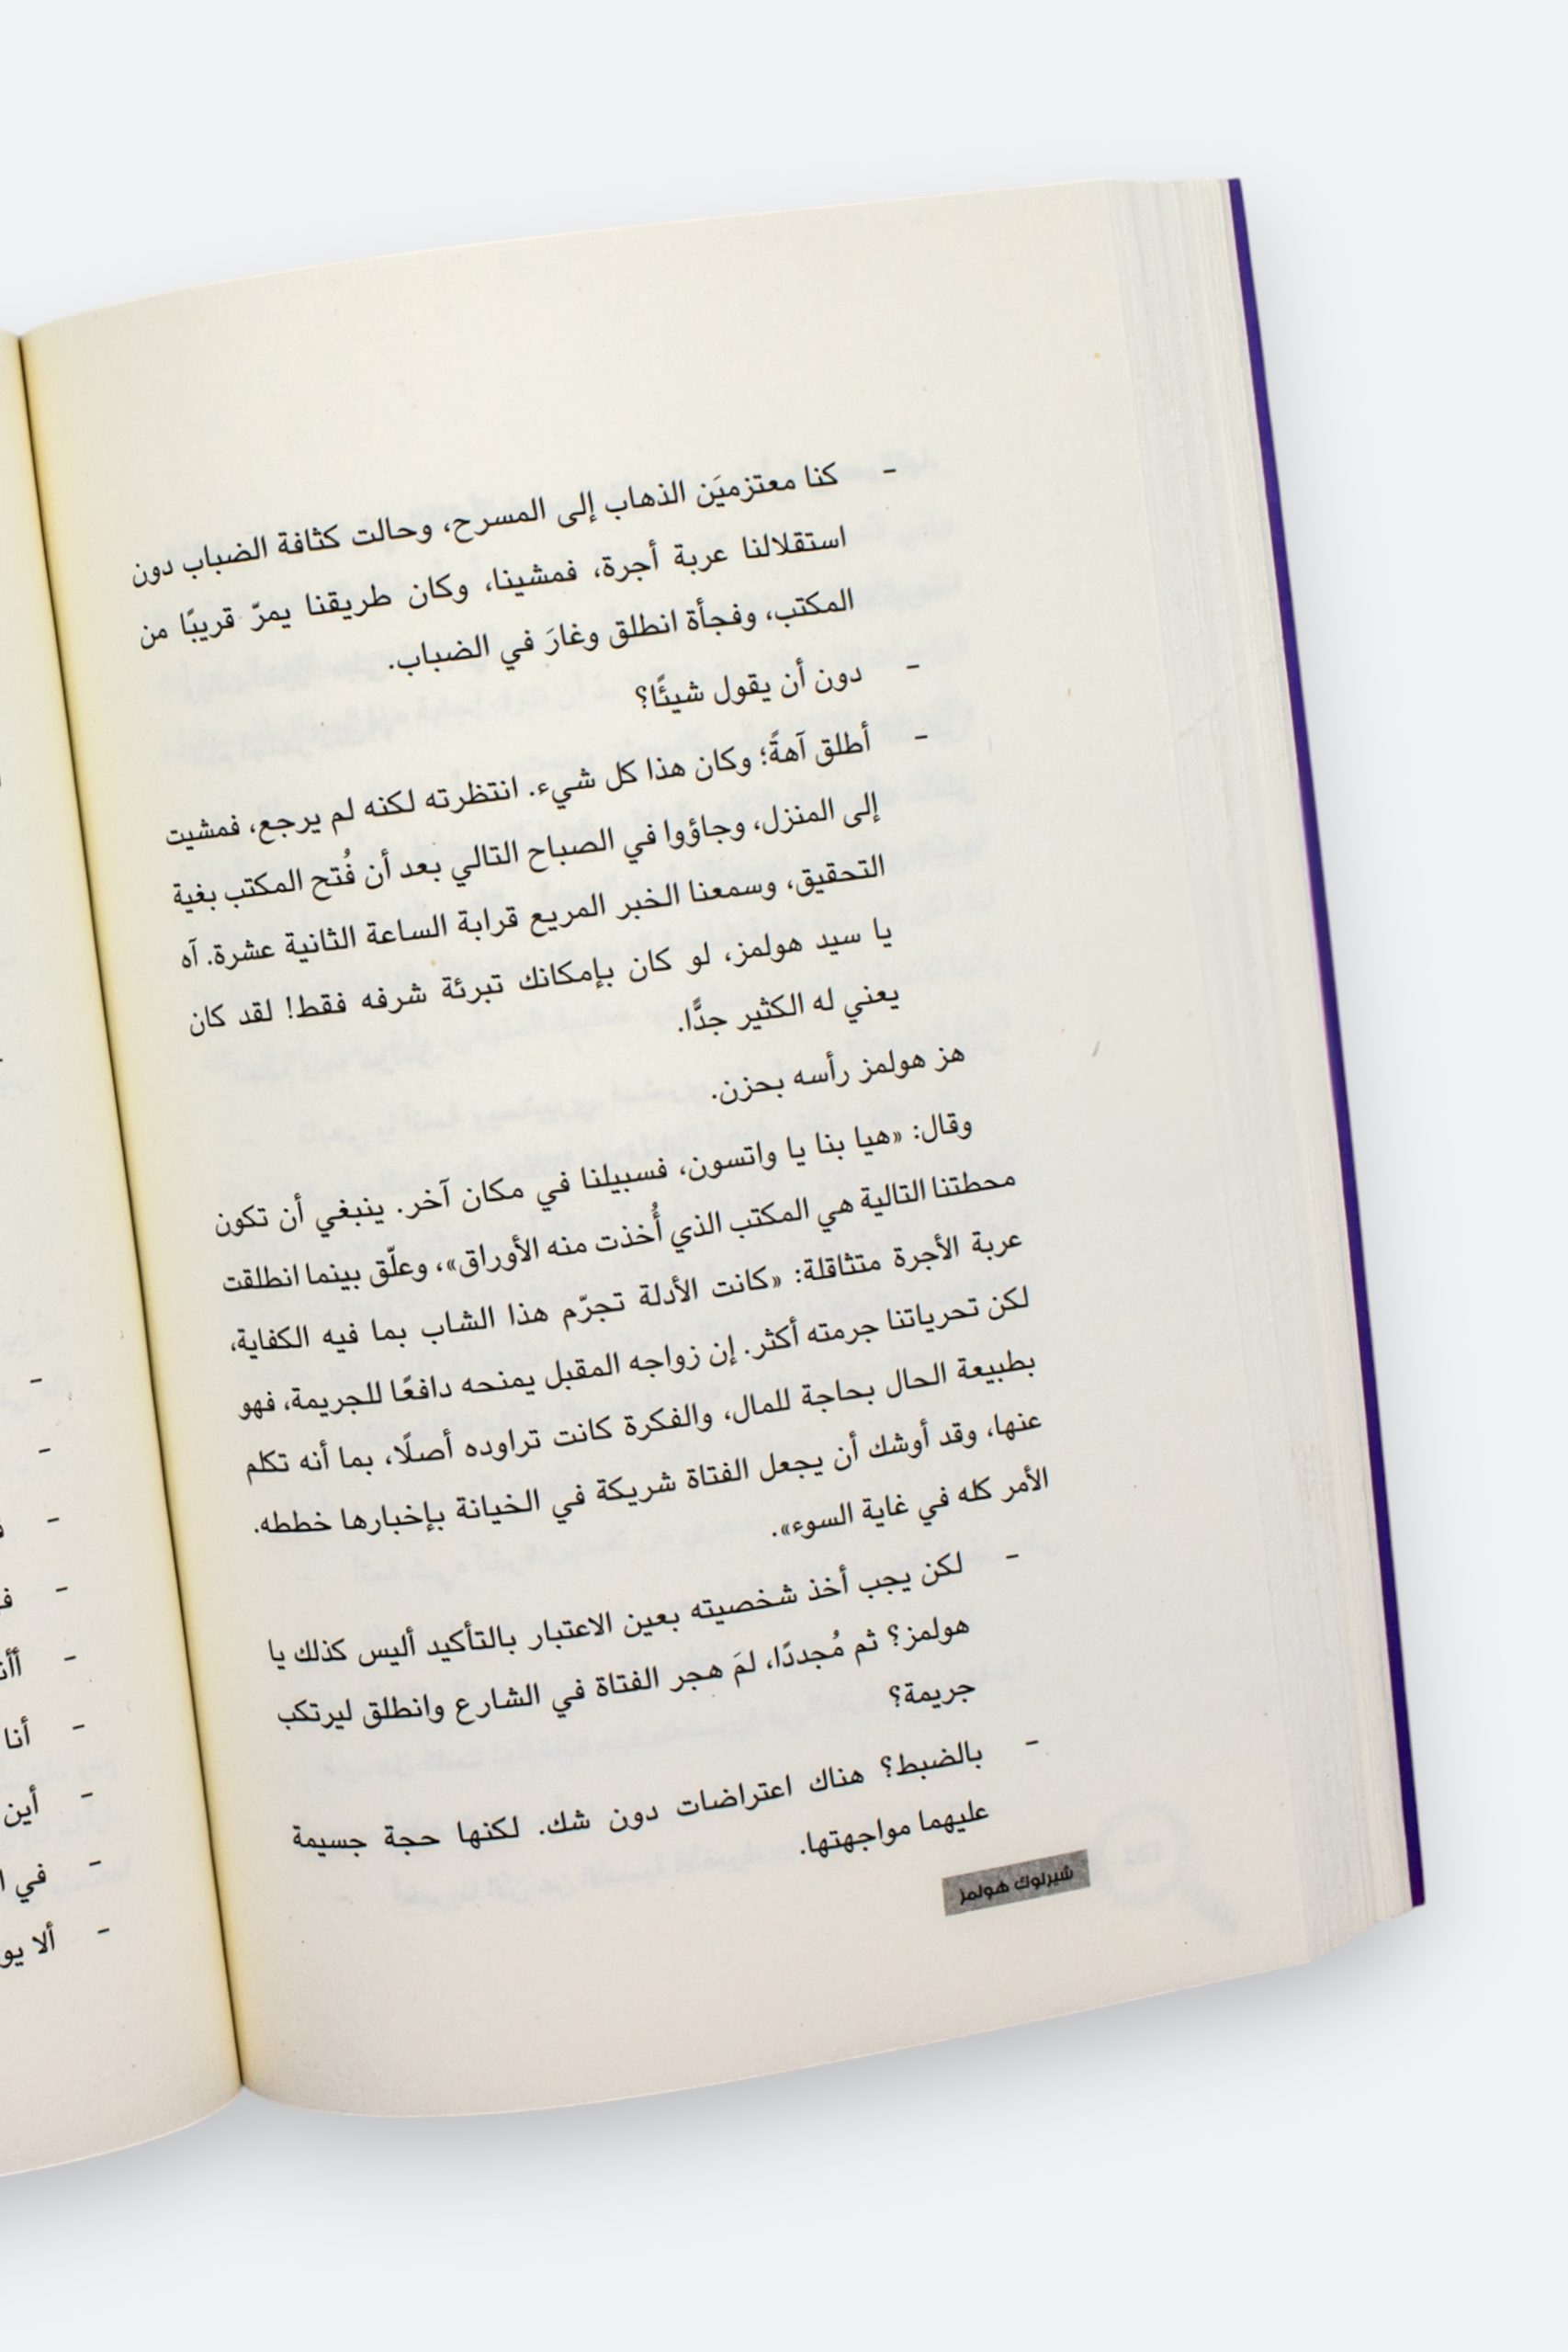 - كنا معتزميَن الذهاب إلى المسرح، وحالت كثافة الضباب دون
استقلالنا عربة أجرة، فمشينا، وكان طريقنا يمرّ قريبًا من
المكتب، وفجأة انطلق وغارَ في الضباب.
- دون أن يقول شيئًا؟
- أطلق آهةً؛ وكان هذا كل شيء. انتظرته لكنه لم يرجع، فمشيت
إلى المنزل، وجاؤوا في الصباح التالي بعد أن فُتح المكتب بغية
التحقيق، وسمعنا الخبر المريع قرابة الساعة الثانية عشرة. آه
يا سيد هولمز، لو كان بإمكانك تبرئة شرفه فقط! لقد كان
يعني له الكثير جدًّا.
هز هولمز رأسه بحزن.
وقال: «هيا بنا يا واتسون، فسبيلنا في مكان آخر. ينبغي أن تكون
محطتنا التالية هي المكتب الذي أُخذت منه الأوراق»، وعلّق بينما انطلقت
عربة الأجرة متثاقلة: «كانت الأدلة تجرّم هذا الشاب بما فيه الكفاية،
لكن تحرياتنا جرمته أكثر. إن زواجه المقبل يمنحه دافعًا للجريمة، فهو
بطبيعة الحال بحاجة للمال، والفكرة كانت تراوده أصلًا، بما أنه تكلم
عنها، وقد أوشك أن يجعل الفتاة شريكة في الخيانة بإخبارها خططه.
الأمر كله في غاية السوء».
- لكن يجب أخذ شخصيته بعين الاعتبار بالتأكيد أليس كذلك يا
هولمز؟ ثم مُجددًا، لمَ هجر الفتاة في الشارع وانطلق ليرتكب
جريمة؟
- بالضبط؟ هناك اعتراضات دون شك. لكنها حجة جسيمة
عليهما مواجهتها.
شيرلوك هولمز
- أنا
- أين
- في
- ألا